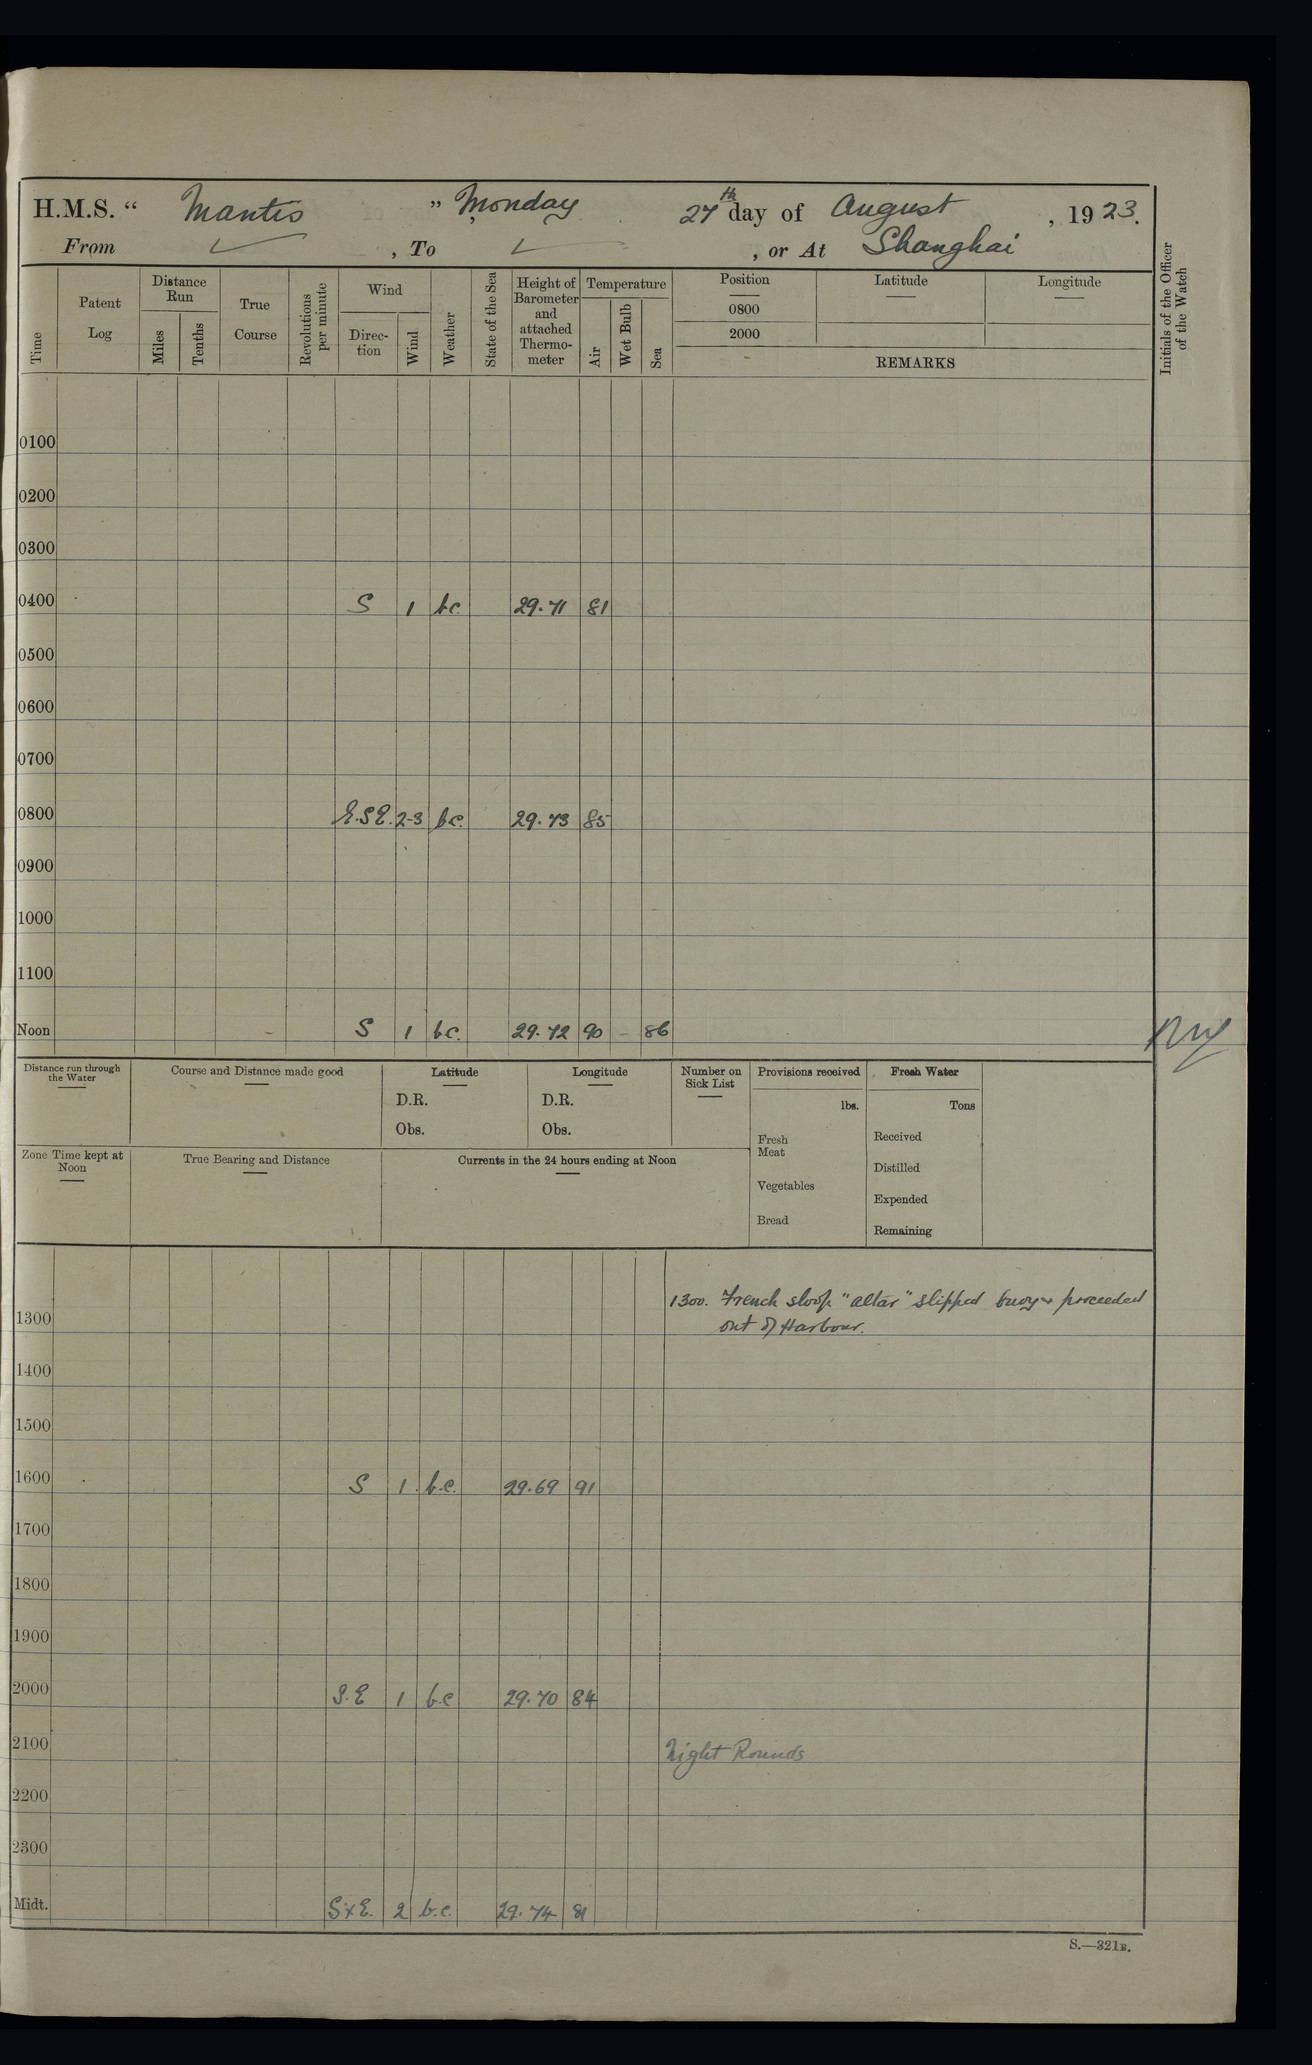 H.M.S. “ Mantis ” Monday 27th day of August, 1923.
From ✓, To ✓, or At Shanghai
Time
Patent Log
Distance Run
Miles
Tenths
True Course
Revolutions per minute
Wind
Direc-tion
Wind
Weather
State of the Sea
Height of Barometer and attached Thermo-meter
Temperature
Air
Wet Bulb
Sea
Position
0800
2000
Latitude
Longitude
REMARKS
Initials of the Officer of the Watch
0100
0200
0300
0400 S 1 bc. 29.71 81
0500
0600
0700
0800 E.S.E. 2-3 bc. 29.73 85
0900
1000
1100
Noon S 1 bc. 29.72 90 – 86
Distance run through the Water
Course and Distance made good
Latitude
D.R.
Obs.
Longitude
D.R.
Obs.
Number on Sick List
Provisions received
lbs.
Fresh Meat
Vegetables
Bread
Fresh Water
Tons
Received
Distilled
Expended
Remaining
Zone Time kept at Noon
True Bearing and Distance
Currents in the 24 hours ending at Noon
1300. French sloop "altar" slipped buoy & proceeded
out of Harbour.
1300
1400
1500
1600 S 1 b.c. 29.69 91
1700
1800
1900
2000 S.E 1 b.c 29.70 84
2100 Night Rounds
2200
2300
Midt. SxE. 2 b.c. 29.74 81
S.—321B.